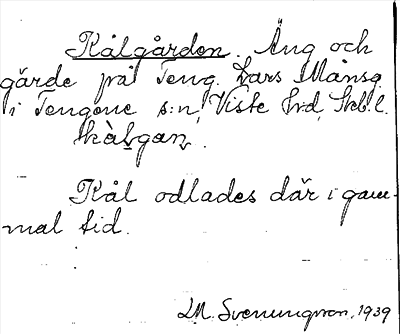 Kålgården. Äng och
gärde på Teng. Lars Månsg.
i Tengene s:n, Viste hrd, Skb.l.
Kål odlades där i gam-
mal tid.
M. Svenungsson, 1939